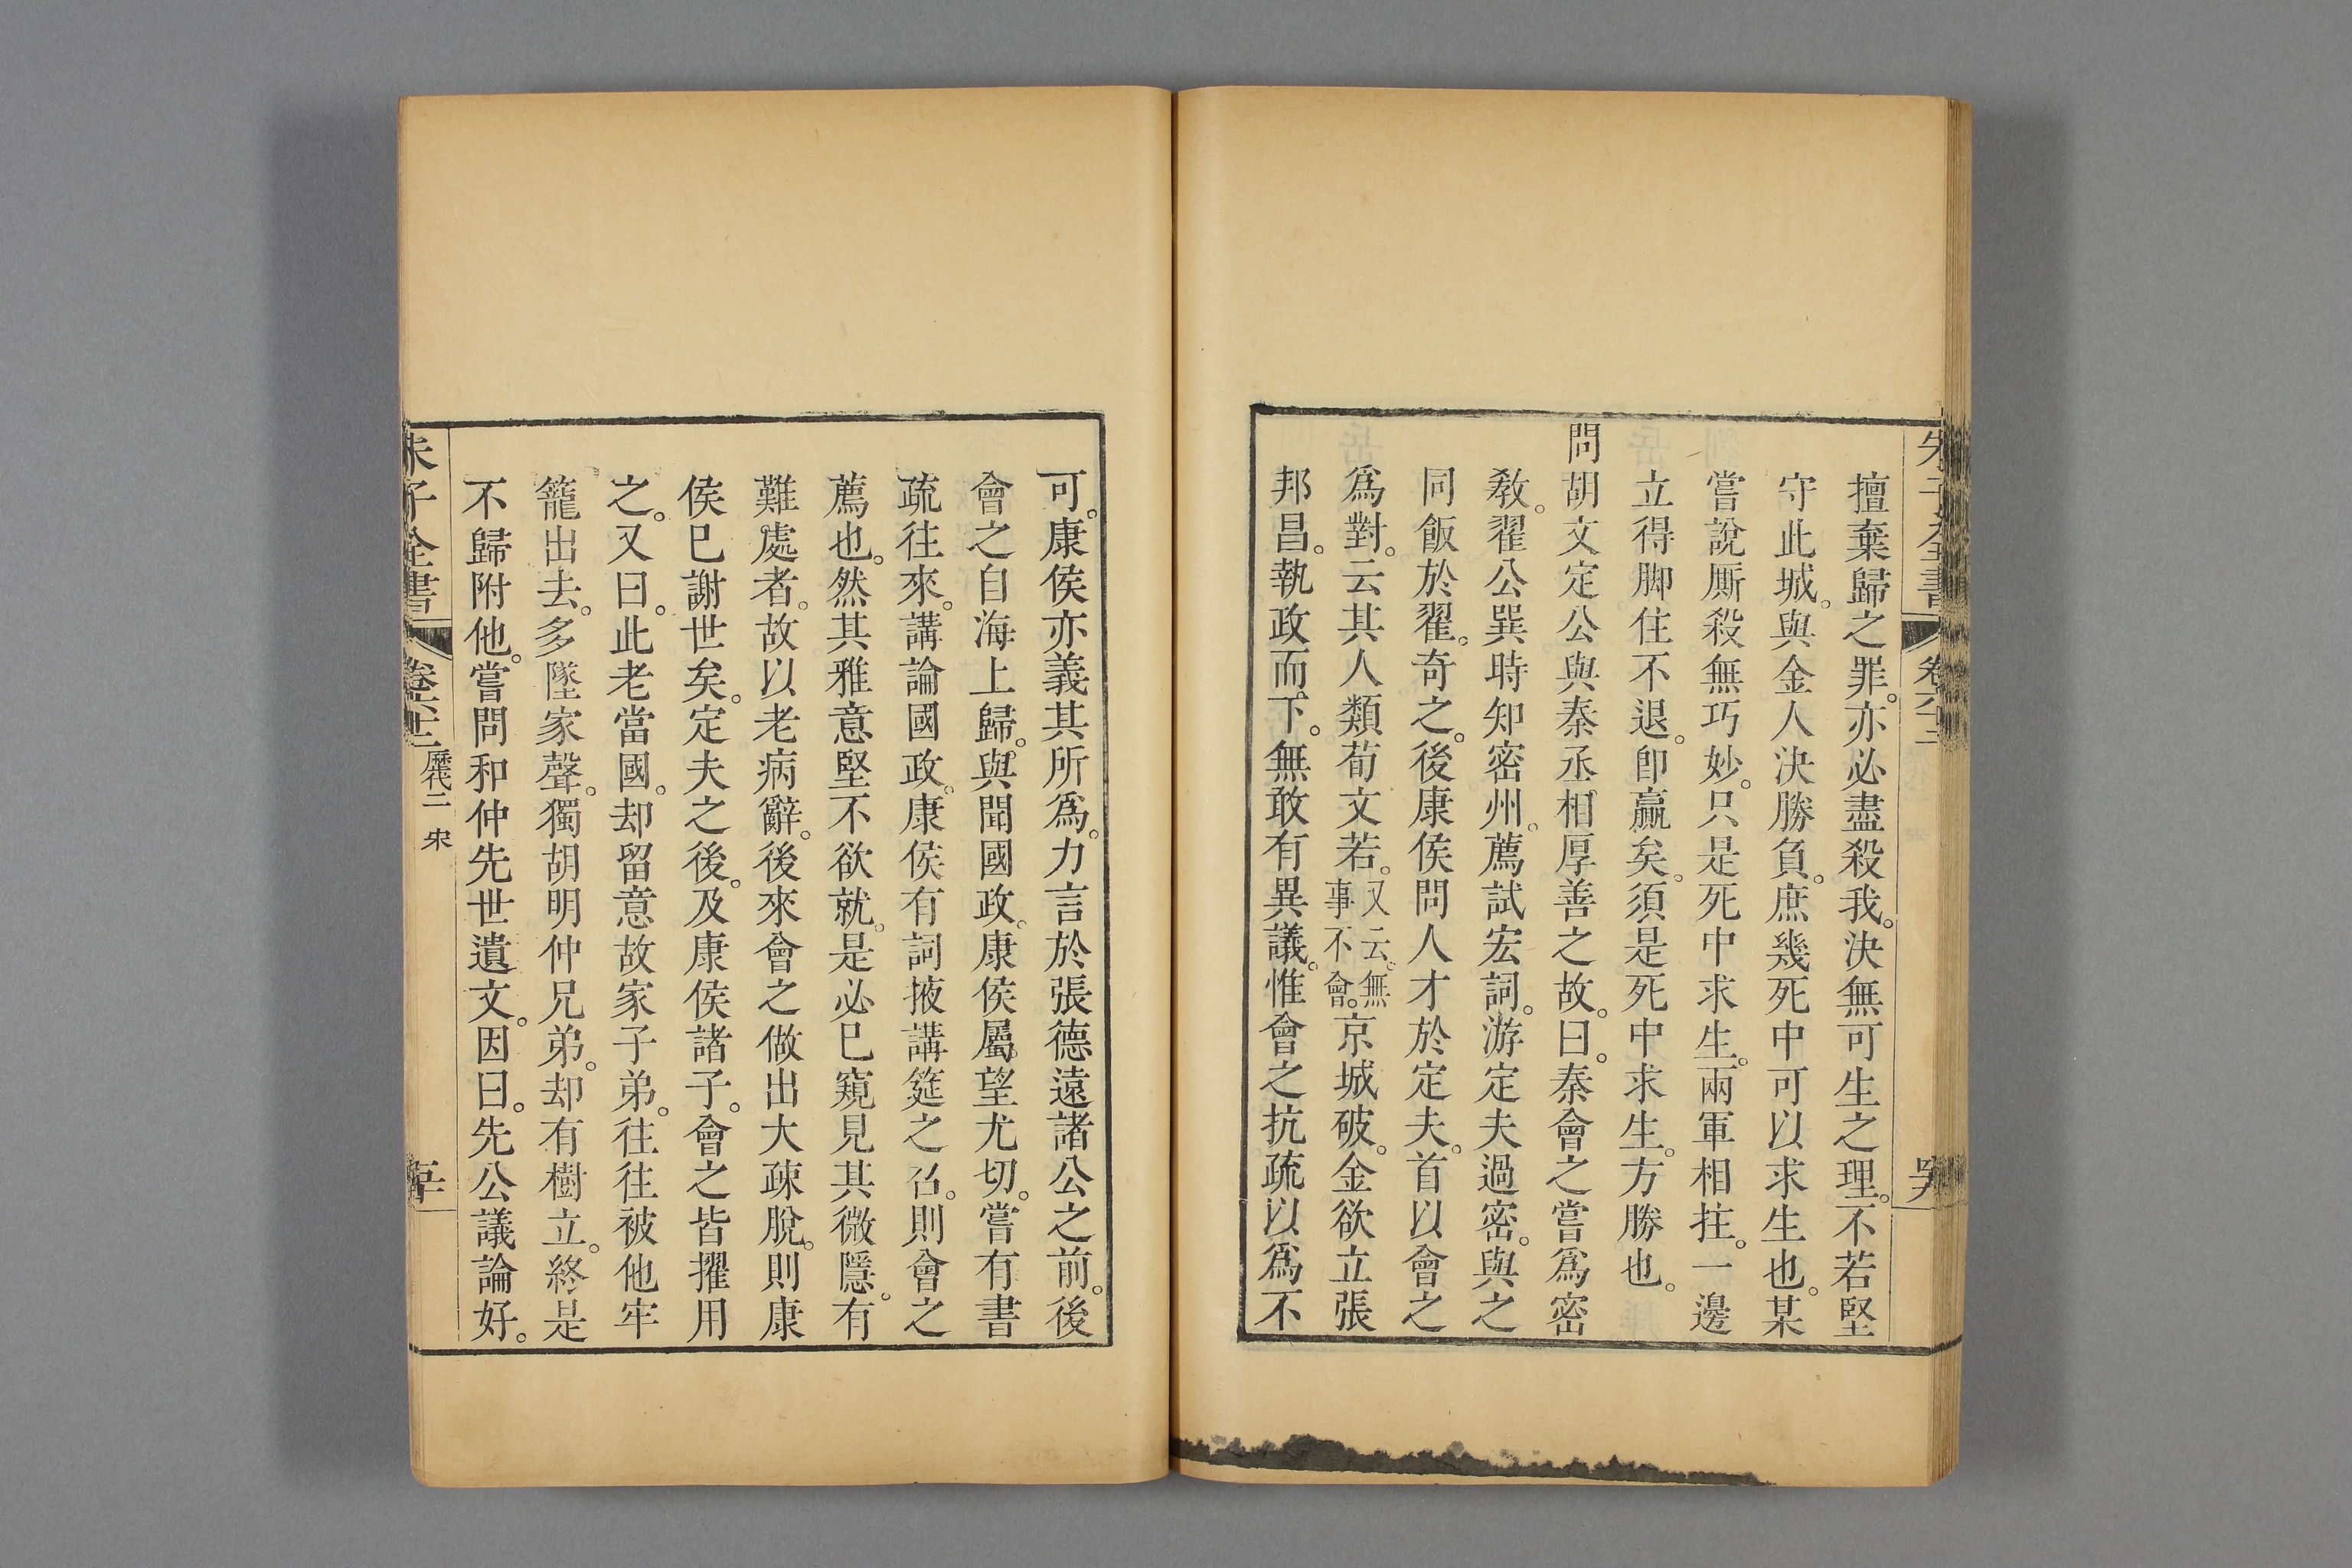 朱子全書 卷六十二
擅棄歸之罪。亦必盡殺我。決無可生之理。不若堅
守此城。與金人決勝負。庶幾死中可以求生也。某
嘗說厮殺無巧妙。只是死中求生。兩軍相拄。一邊
立得脚住不退。卽贏矣。須是死中求生。方勝也。
問胡文定公與秦丞相厚善之故。曰。秦會之嘗爲密
敎。翟公巽時知密州。薦試宏詞。游定夫過密。與之
同飯於翟。奇之。後康侯問人才於定夫。首以會之
爲對。云其人類荀文若。又云。無事不會。京城破。金欲立張
邦昌。執政而下。無敢有異議。惟會之抗疏以爲不
可。康侯亦義其所爲。力言於張德遠諸公之前。後
會之自海上歸。與聞國政。康侯屬望尤切。嘗有書
疏往來。講論國政。康侯有詞掖講筵之召。則會之
薦也。然其雅意堅不欲就。是必已窺見其微隱。有
難處者。故以老病辭。後來會之做出大疎脫。則康
侯已謝世矣。定夫之後。及康侯諸子。會之皆擢用
之。又曰。此老當國。却留意故家子弟。往往被他牢
籠出去。多墜家聲。獨胡明仲兄弟。却有樹立。終是
不歸附他。嘗問和仲先世遺文。因曰。先公議論好。
朱子全書 歷代二 宋